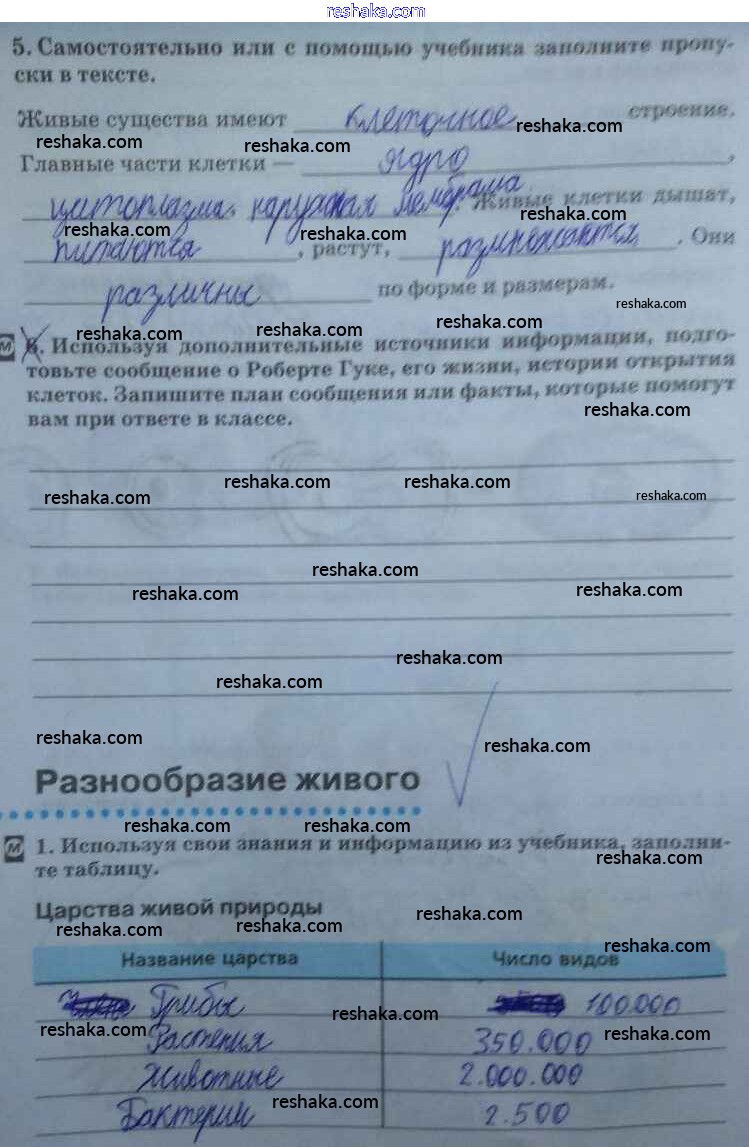 reshaka.com
5. Самостоятельно или с помощью учебника заполните пропу-
ски в тексте.
Живые существа имеют клеточное строение.
reshaka.com reshaka.com reshaka.com
Главные части клетки — ядро,
цитоплазма, наружная мембрана. Живые клетки дышат,
reshaka.com reshaka.com reshaka.com
питаются, растут, размножаются. Они
различны по форме и размерам.
reshaka.com
reshaka.com reshaka.com reshaka.com
М 6. Используя дополнительные источники информации, подго-
товьте сообщение о Роберте Гуке, его жизни, истории открытия
клеток. Запишите план сообщения или факты, которые помогут
reshaka.com
вам при ответе в классе.
reshaka.com reshaka.com reshaka.com reshaka.com
reshaka.com reshaka.com reshaka.com
reshaka.com reshaka.com
reshaka.com reshaka.com
Разнообразие живого
reshaka.com reshaka.com
М 1. Используя свои знания и информацию из учебника, заполни-
те таблицу.
reshaka.com
Царства живой природы
reshaka.com reshaka.com reshaka.com
reshaka.com
Название царства Число видов
Грибы 100.000
reshaka.com reshaka.com reshaka.com
Растения 350.000
Животные 2.000.000
reshaka.com
Бактерии 2.500